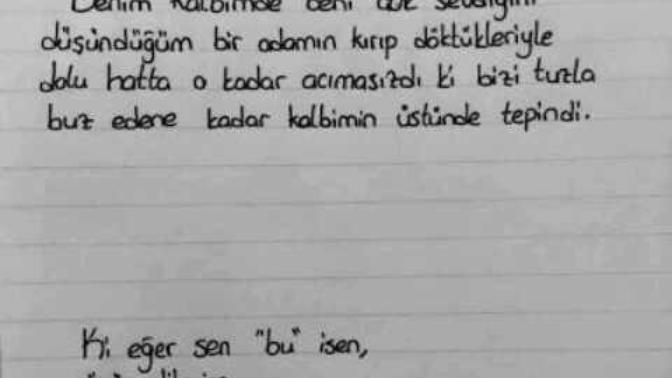 Benim kalbimde beni çok sevdiğini
düşündüğüm bir adamın kırıp döktükleriyle
dolu hatta o kadar acımasızdı ki bizi tuzla
buz edene kadar kalbimin üstünde tepindi.
Ki eğer sen "bu" isen,